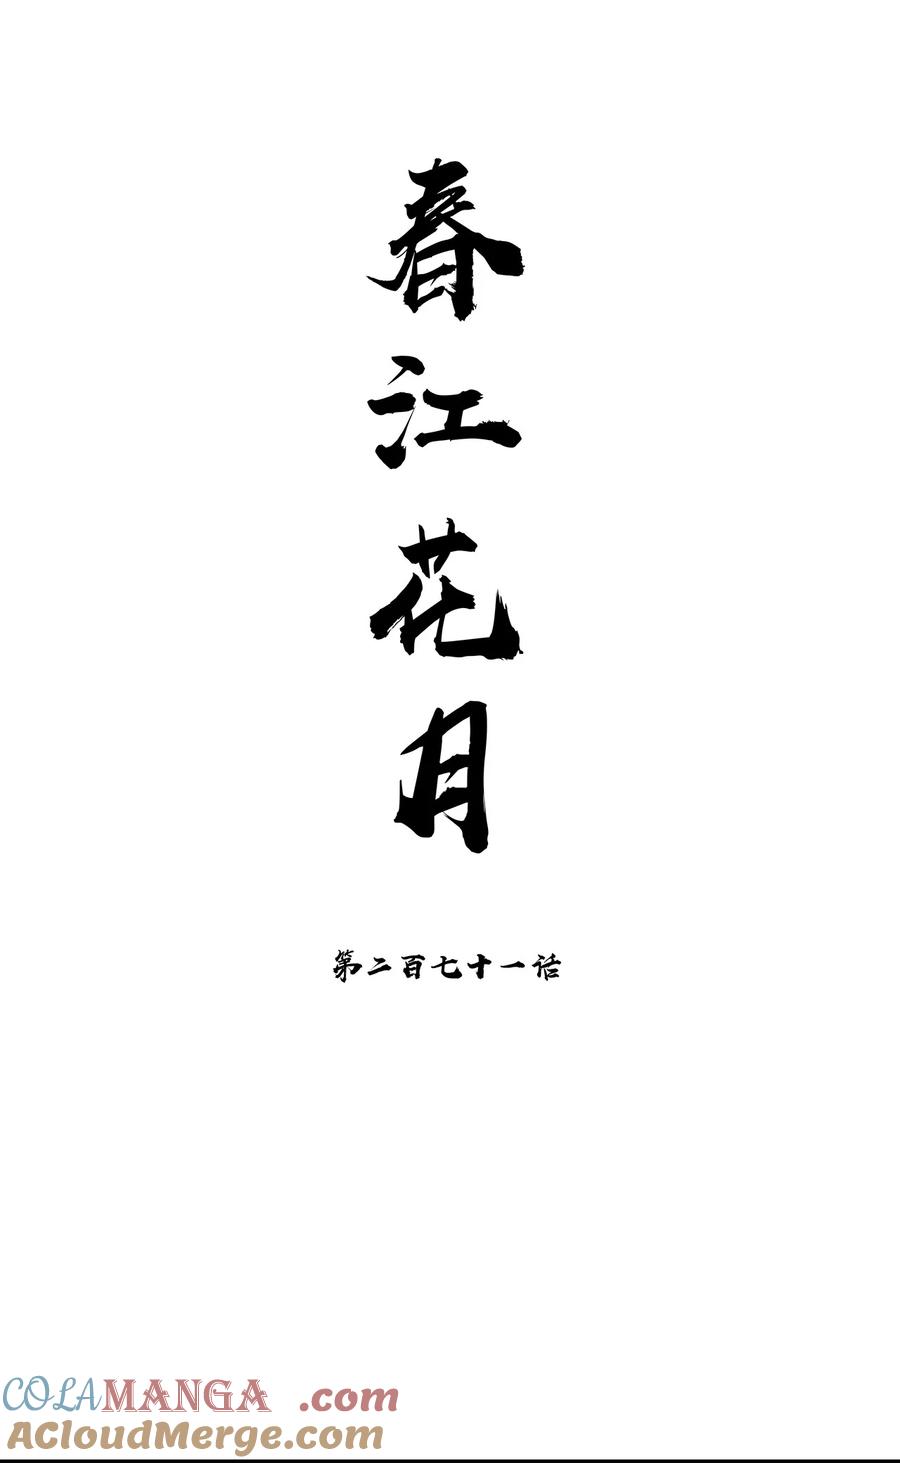 春江花月
第二百七十一话
COLAMANGA.com
ACloudMerge.com